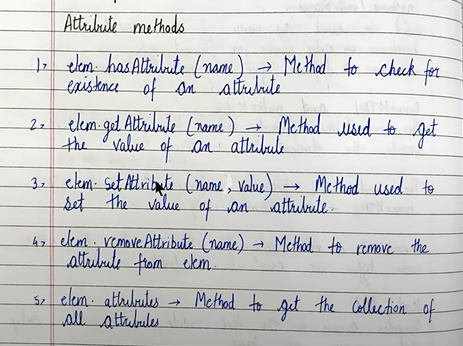 Attribute methods
1, elem. hasAttribute (name) → Method to check for
existence of an attribute
2, elem. getAttribute (name) → Method used to get
the value of an attribute
3, elem. setAttribute (name, value) → Method used to
set the value of an attribute.
4, elem. removeAttribute (name) → Method to remove the
attribute from elem.
5, elem. attributes → Method to get the collection of
all attributes